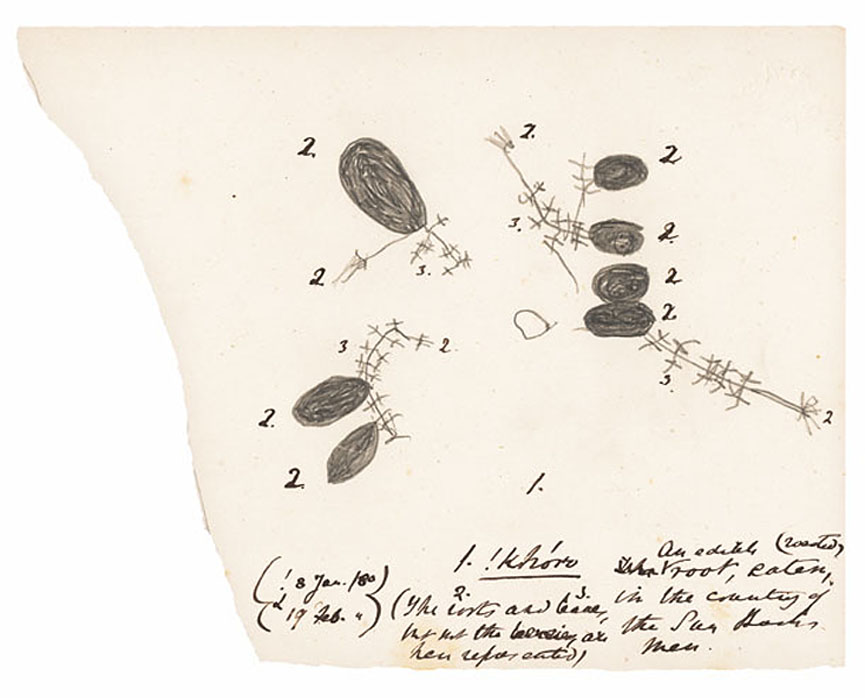 2.
2.
2
2.
3.
2.
2
2
2.
3.
3.
2.
3
2.
2.
3.
2
1.
1. !Khóro
An edible (roasted)
root, eaten,
in the country of
the San
men.
(! 8 Jan. /80)
( 19 Feb. " )
2. 3.
(The roots and leaves,
but not the berries, are
here represented)